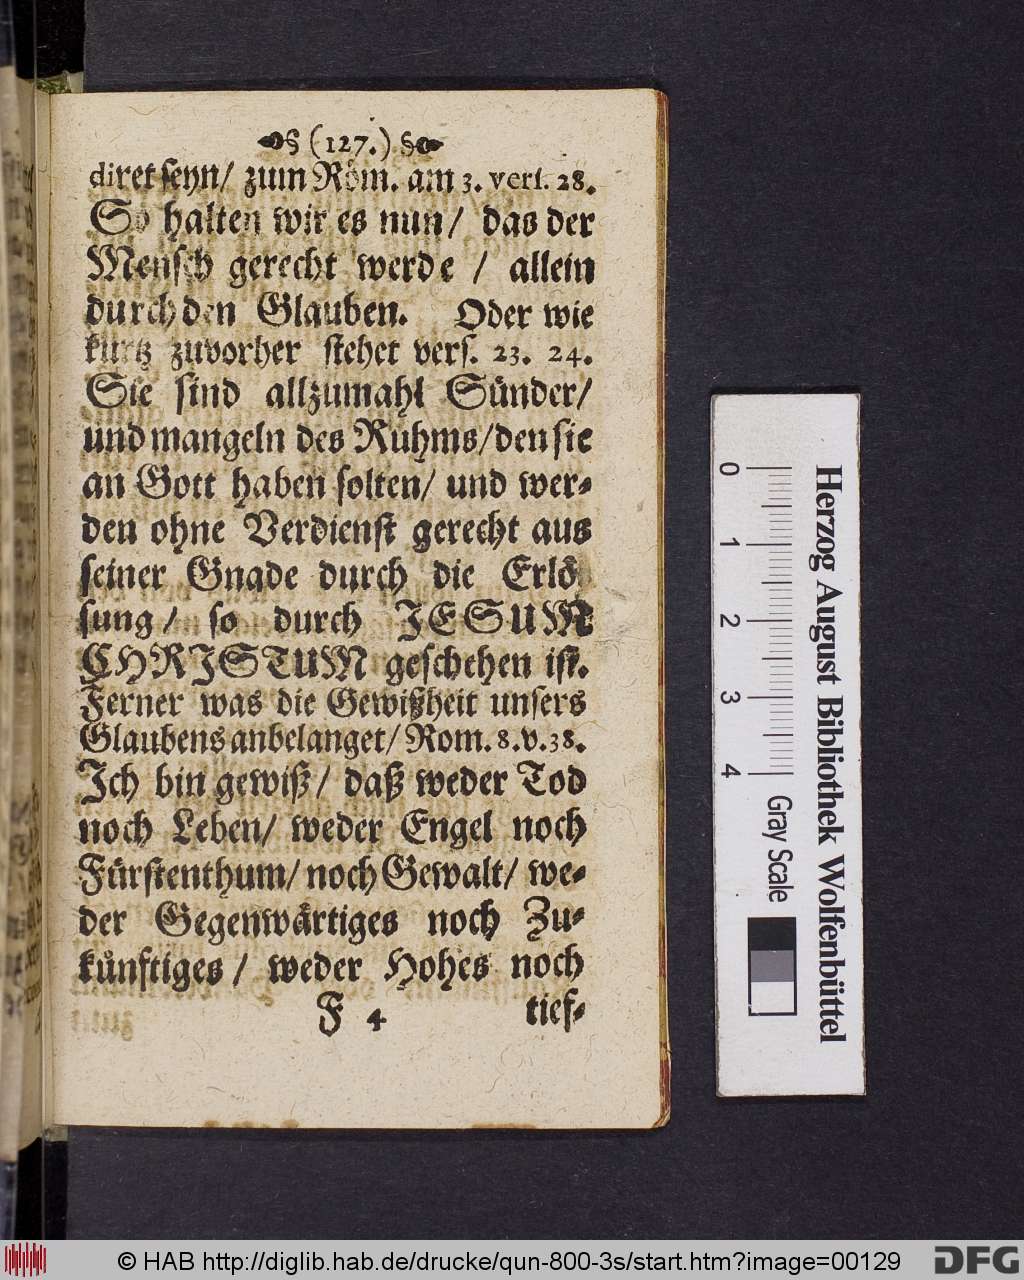 § (127.) §
diret seyn/ zum Röm. am 3. vers. 28.
So halten wir es nun/ das der
Mensch gerecht werde / allein
durch den Glauben. Oder wie
kurtz zuvorher stehet vers. 23. 24.
Sie sind allzumahl Sünder/
und mangeln des Ruhms/ den sie
an Gott haben solten/ und wer-
den ohne Verdienst gerecht aus
seiner Gnade durch die Erlö
sung/ so durch JESUM
CHRISTUM geschehen ist.
Ferner was die Gewißheit unsers
Glaubens anbelanget/ Rom. 8. v. 38.
Ich bin gewiß/ daß weder Tod
noch Leben/ weder Engel noch
Fürstenthum/ noch Gewalt/ we-
der Gegenwärtiges noch Zu-
künftiges / weder Hohes noch
F 4 tief-
0 1 2 3 4 Gray Scale
Herzog August Bibliothek Wolfenbüttel
© HAB http://diglib.hab.de/drucke/qun-800-3s/start.htm?image=00129
DFG